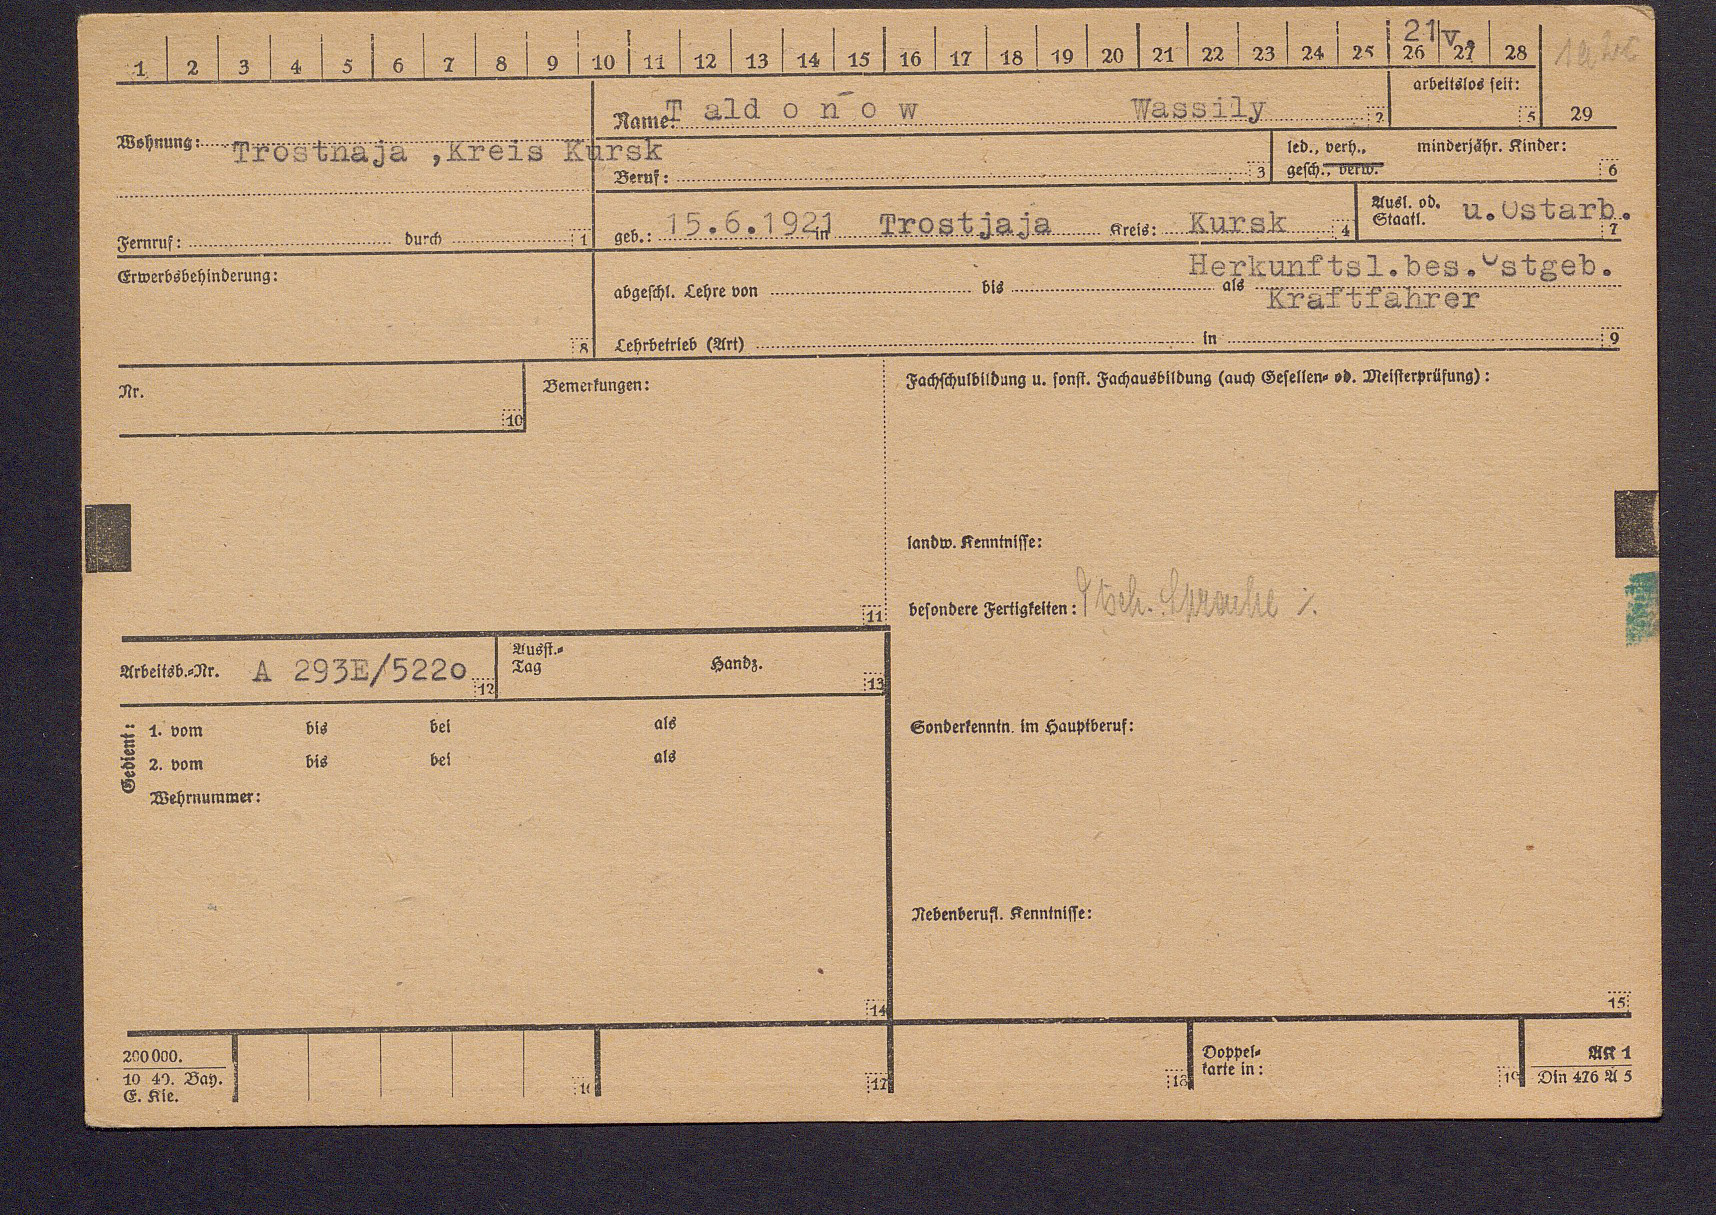 21 v.
1 2 3 4 5 6 7 8 9 10 11 12 13 14 15 16 17 18 19 20 21 22 23 24 25 26 27 28
arbeitslos seit:
Name: T ald o n o w Wassily 2
5 29
Wohnung: Trostnaja ,Kreis Kursk
led., verh., gesch., verw.
minderjähr. Kinder:
Beruf: 3
6
Ausl. od. Staatl. u.Ostarb. 7
Fernruf: durch 1
geb.: 15.6.1921 in Trostjaja Kreis: Kursk 4
Erwerbsbehinderung:
Herkunftsl.bes.Ostgeb.
abgeschl. Lehre von bis als
Kraftfahrer
8 Lehrbetrieb (Art) in 9
Nr.
10
Bemerkungen:
11
Fachschulbildung u. sonst. Fachausbildung (auch Gesellen- od. Meisterprüfung):
landw. Kenntnisse:
besondere Fertigkeiten: Dtsch. Sprache %.
Arbeitsb.-Nr. A 293E/522o 12
Ausst.-
Tag Handz. 13
Gedient:
1. vom bis bei als
2. vom bis bei als
Wehrnummer:
14
Sonderkenntn. im Hauptberuf:
Nebenberufl. Kenntnisse:
15
200 000.
10 40. Bay.
E. Kie.
16
17
18
Doppel-
karte in:
19
AK 1
Din 476 A 5